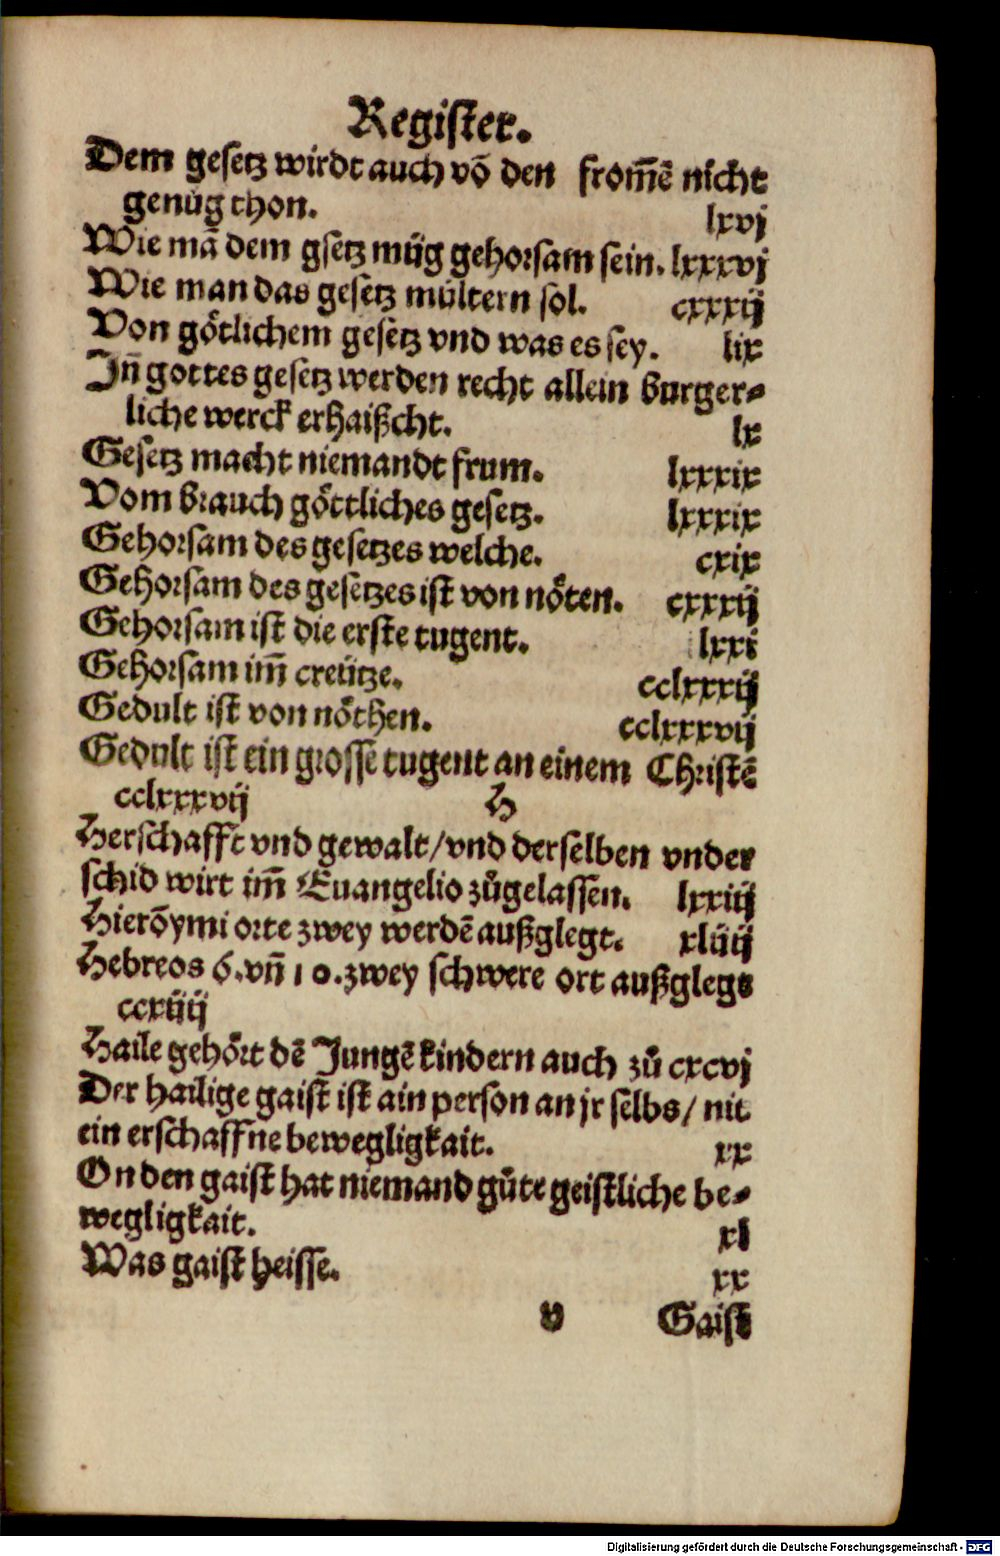 Register.
Dem gesetz wirdt auch võ den from̃ẽ nicht
genůg thon. lxvj
Wie mã dem gsetz müg gehorsam sein. lxxxvj
Wie man das gesetz mültern sol. cxxxij
Von götlichem gesetz vnd was es sey. lix
Jñ gottes gesetz werden recht allein burger⸗
liche werck erhaißcht. lx
Gesetz macht niemandt frum. lxxxix
Vom brauch göttliches gesetz. lxxxix
Gehorsam des gesetzes welche. cxix
Gehorsam des gesetzes ist von nöten. cxxxij
Gehorsam ist die erste tugent. lxxi
Gehorsam im̃ creütze. cclxxxij
Gedult ist von nöthen. cclxxxvij
Gedult ist ein grosse tugent an einem Christẽ
cclxxxvij H
Herschafft vnd gewalt/vnd derselben vnder
schid wirt im̃ Euangelio zůgelassen. lxxiij
Hierõymi orte zwey werdẽ außglegt. xliiij
Hebreos 6.vñ 10.zwey schwere ort außglegs
ccxiiij
Haile gehört dẽ Jungẽ kindern auch zů cxcvj
Der hailige gaist ist ain person an jr selbs/ nit
ein erschaffne bewegligkait. xx
On den gaist hat niemand gůte geistliche be⸗
wegligkait. xl
Was gaist heisse. xx
v Gaist
Digitalisierung gefördert durch die Deutsche Forschungsgemeinschaft - DFG